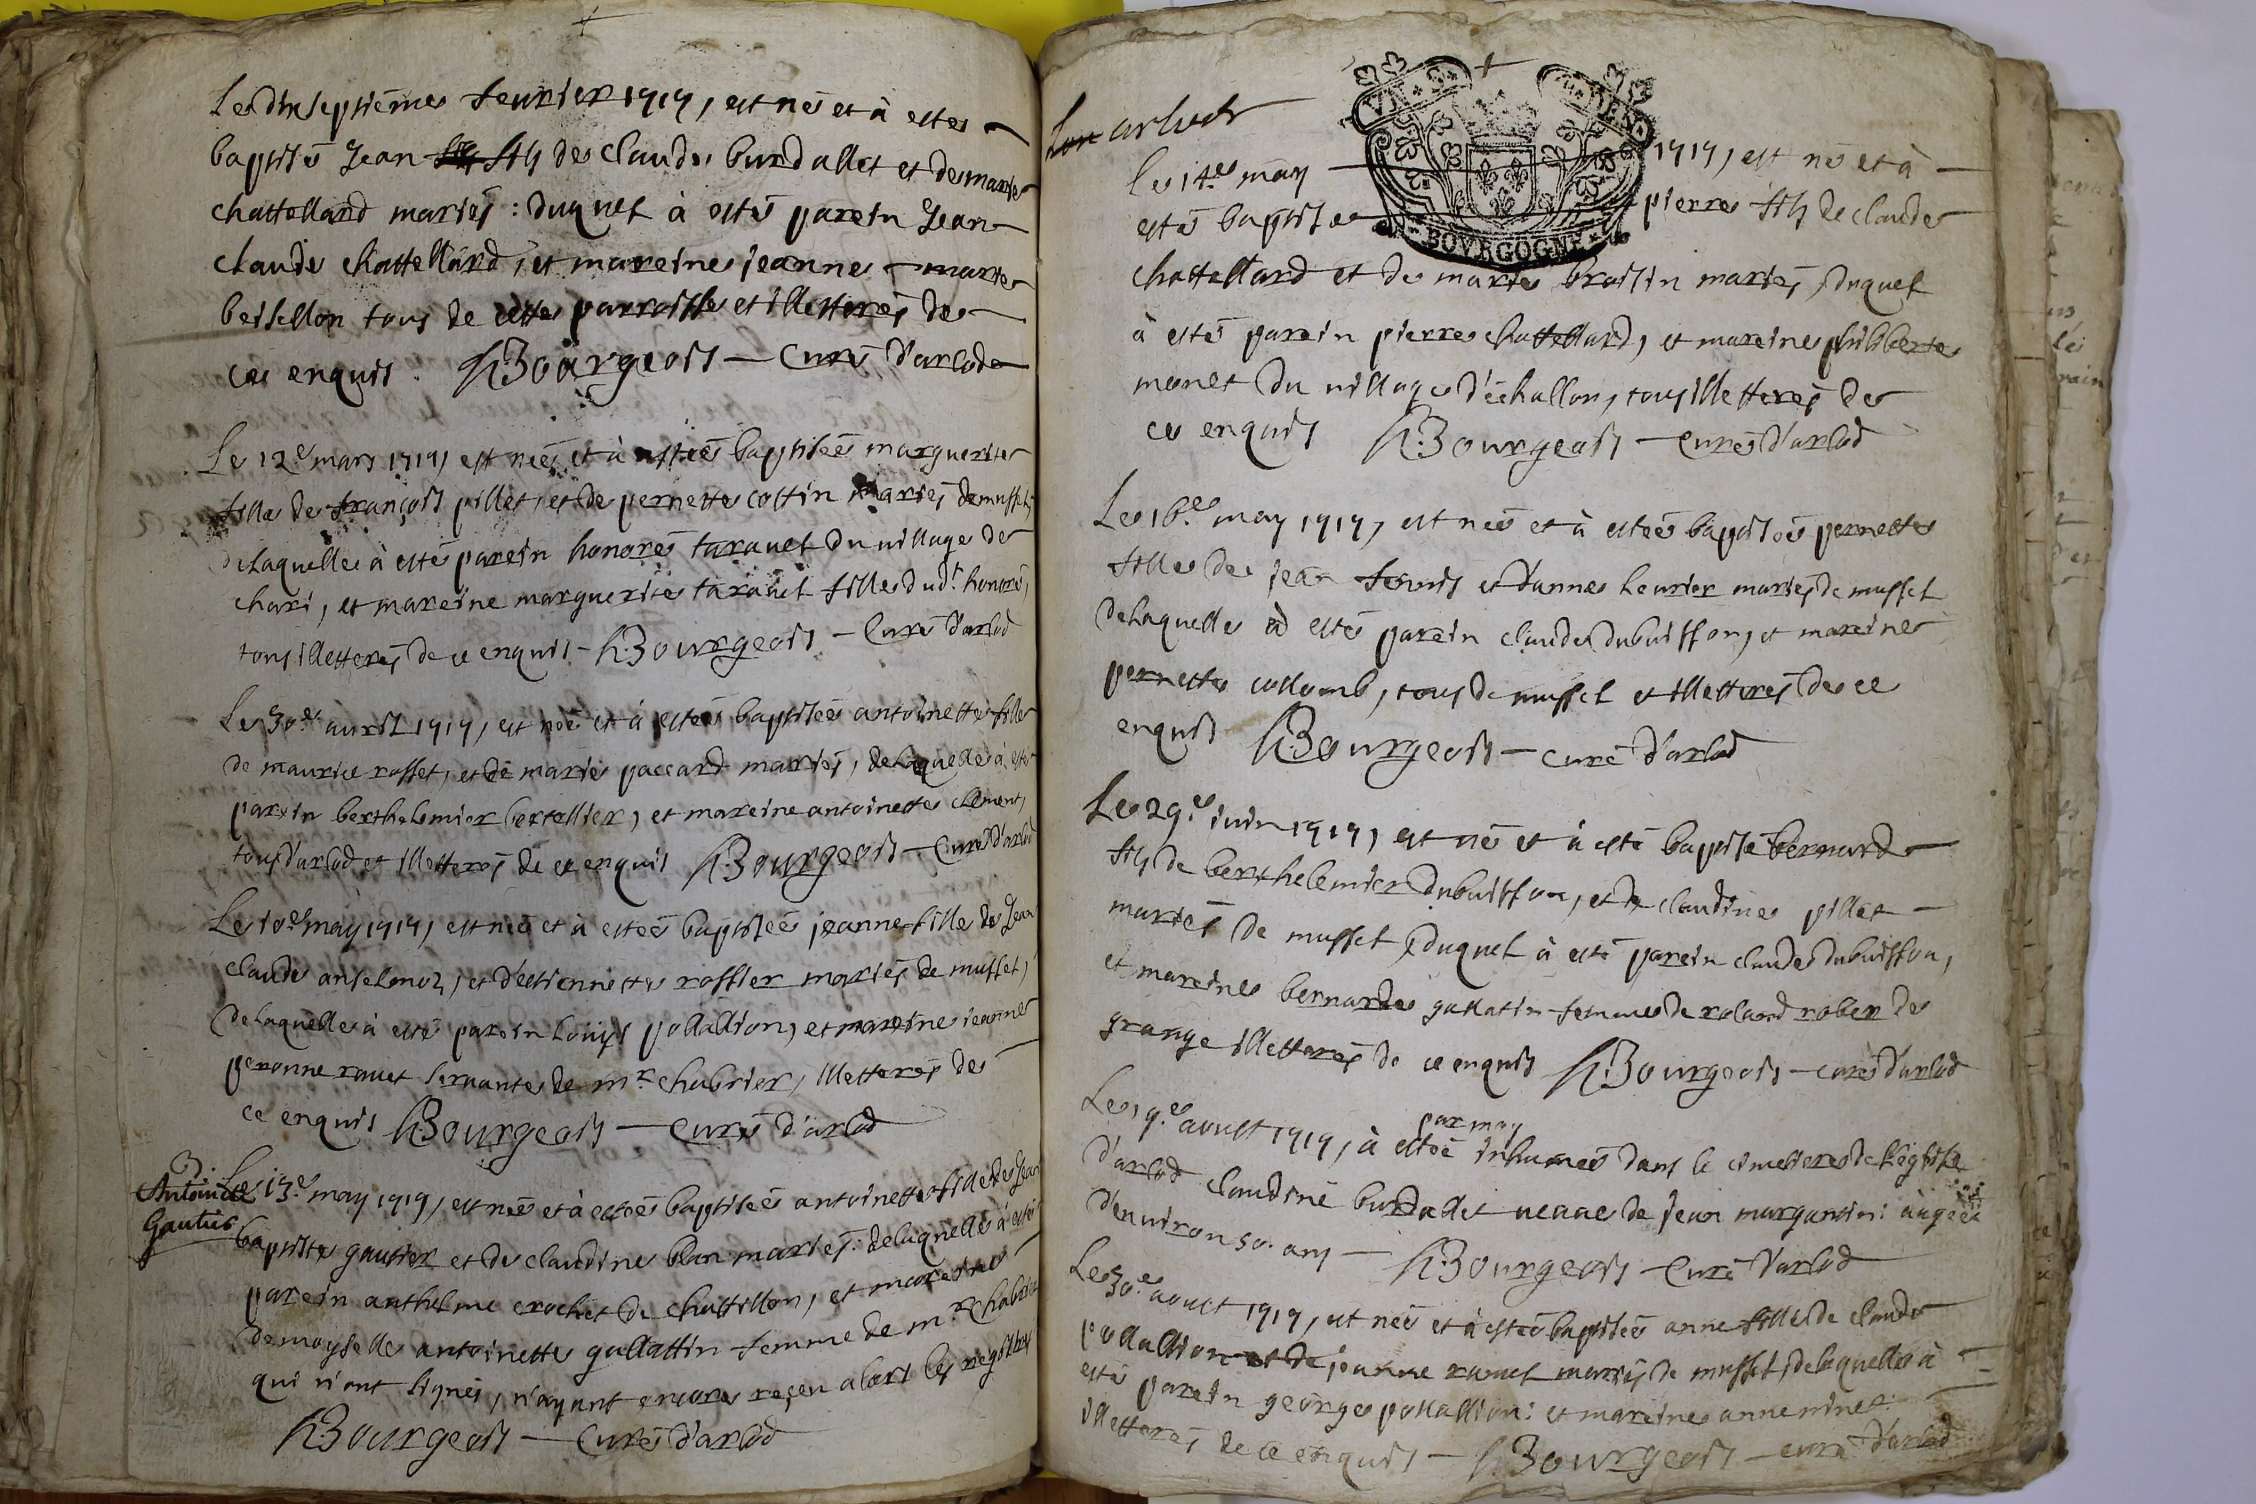 Le dixseptiéme feurier 1717, est né et à esté
baptisé Jean fils de claude burdallet et de marie
chattellard mariés : duquel à esté parein Jean
claude chattellard, et mareine jeanne marie
beisellon tous de cette parroisse et illetterés de
ce enquis. Bourgeois — Curé d'arlod
Le 12e mars 1717, est neé et à esteé baptiseé marguerite
fille de françois pillet, et de pernette costin mariés de mussel,
delaquelle à esté parein honoré tarauel du uillage de
chari, et mareine marguerite tarauel fille dudt. honoré,
tous illetterés de ce enquis — Bourgeois — Curé d'arlod
Le 30e auril 1717, est neé et à esteé baptiseé antoinette fille
de maurice rosset, et de marie paccard mariés, delaquelle à esté
parein berthelemier bertallier, et mareine antoinette clement,
tous d'arlod et illetterés de ce enquis Bourgeois — Curé d'arlod
Le 10e may 1717, est neé et à esteé baptiseé jeanne fille de Jean
claude anselmoz, et d'estiennette rossier mariés de mussel,
delaquelle à esté parein Louys pollallion, et mareine jeanne
peronne rauet seruante de mr. chabrier, illetterés de
ce enquis Bourgeois — Curé d'arlod
Antoinette
Gautier
Le 13e may 1717, est neé et à esteé baptiseé antoinette fille de Jean
baptiste gautier et de claudine blan mariés: delaquelle à esté
parein anthelme crochet de chattillon, et mareine
demoyselle antoinette gallattin femme de mr. chabrier
qui n'ont signés, n'ayant encore reçeu alors les registres
Bourgeois — Curé d'arlod
arlod
VI DEN
BOVRGOGNE
Le 14e may 1717, est né et à
esté baptisé pierre fils de claude
chattellard et de marie braisin mariés, duquel
à esté parein pierre chattellard, et mareine philiberte
monet du uillage d'échallon, tous illetterés de
ce enquis Bourgeois — Curé d'arlod
Le 16e may 1717, est neé et à esteé baptiseé pernette
fille de jean seruis et d'anne leurier mariés de mussel
delaquelle à esté parein claude dubuisson, et mareine
pernette collomb, tous de mussel et illetterés de ce
enquis Bourgeois — curé d'arlod
Le 29e juin 1717, est né et à esté baptisé bernard
fils de berthelemier dubuisson, et de claudine pillet
mariés de mussel, duquel à esté parein claude dubuisson,
et mareine bernarde gallatin femme de roland rober de
grange illetterés de ce enquis Bourgeois — curé d'arlod
par moy
Le 19e aoust 1717, à esteé inhumeé dans le cimettiere de l'église
d'arlod claudine burdallet ueaue de jean marganin: ageé
d'enuiron 50. ans — Bourgeois — Curé d'arlod
Le 30e aoust 1717, est neé et à esteé baptiseé anne fille de claude
pollallion et de jeanne rauel mariés de mussel, delaquelle à
esté parein george pollallion: et mareine anne ninet:
illetterés de ce enquis — Bourgeois — curé d'arlod